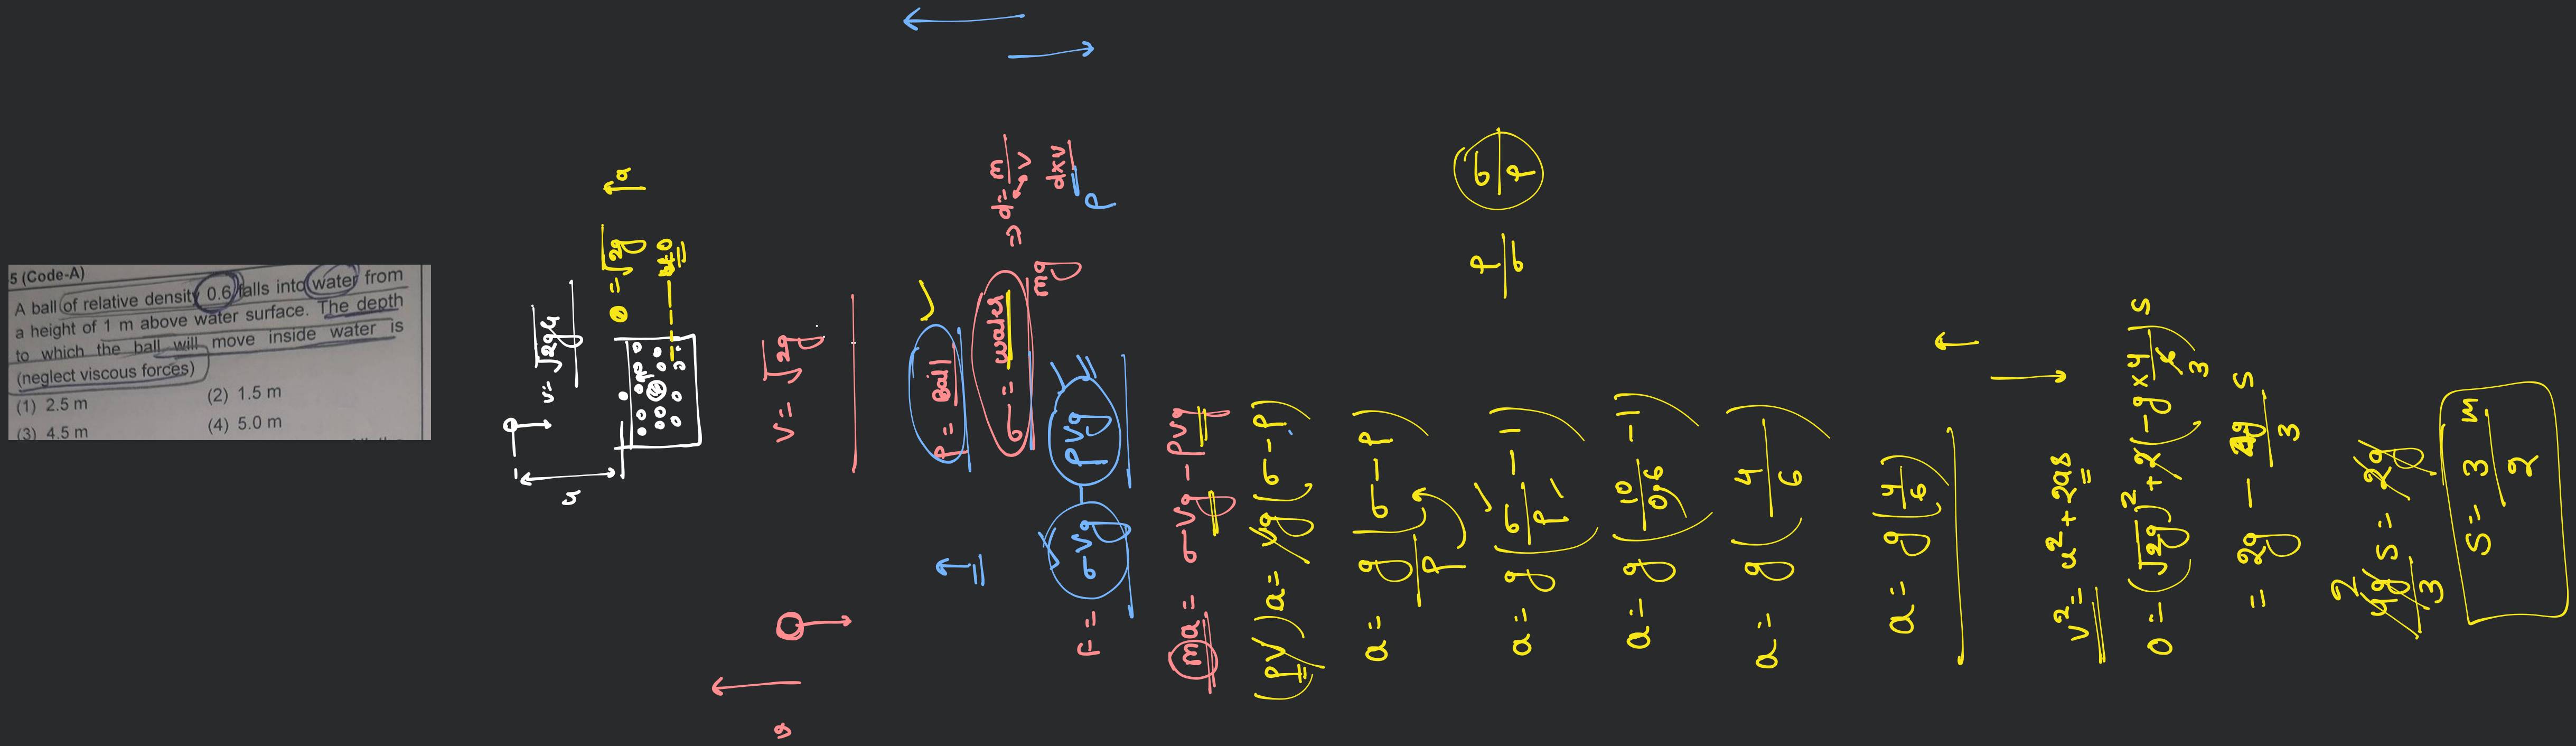 5 (Code-A)
A ball of relative density 0.6 falls into water from
a height of 1 m above water surface. The depth
to which the ball will move inside water is
(neglect viscous forces)
(1) 2.5 m
(2) 1.5 m
(3) 4.5 m
(4) 5.0 m
h
v = √2gh
u = √2g
v=0
a
v = √2g
g
ρ = Ball
σ = water
⇒ d = m/v
d×v
ρ
mg
F = σVg - ρVg
ma = σVg - ρVg
(ρV)a = Vg(σ - ρ)
a = g/ρ (σ - ρ)
a = g(σ/ρ - 1)
ρ/σ
σ/ρ
a = g(10/0.6 - 1)
a = g(4/6)
a = g(4/6)
v² = u² + 2as
0 = (√2g)² + 2(-g × 4/6)s
3
= 2g - 4g/3 s
4g/3 s = 2g
2
s = 3/2 m